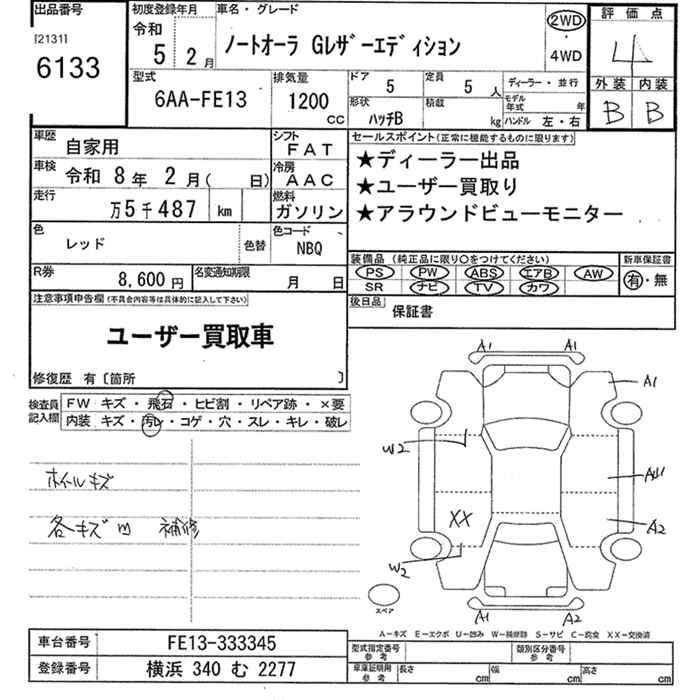 出品番号
[2131]
6133
初度登録年月
令和
5 2月
車名・グレード
ノートオーラ Gレザーエディション
2WD
・
4WD
評価点
4
外装 内装
B B
型式
6AA-FE13
排気量
1200
CC
ドア 5
定員 5 人
形状 ハッチB
積載 kg
ディーラー・並行
モデル年式 年
ハンドル 左・右
車歴 自家用
シフト FAT
車検 令和 8年 2月( 日)
冷房 AAC
走行 万5千487 km
燃料 ガソリン
色 レッド
色替
色コード NBQ
R券 8,600円
名変通知期限 月 日
セールスポイント(正常に機能するものに限ります)
★ディーラー出品
★ユーザー買取り
★アラウンドビューモニター
装備品 (純正品に限り○をつけてください)
新車保証書
PS PW ABS エアB AW
SR ナビ TV カワ
有・無
後日品 保証書
注意事項申告欄(不具合内容等は具体的に記入して下さい)
ユーザー買取車
修復歴 有〔箇所 〕
検査員記入欄
FW キズ・飛石・ヒビ割・リペア跡・×要
内装 キズ・汚レ・コゲ・穴・スレ・キレ・破レ
ホイールキズ
各キズm 補修
A1 A1
A1
W2
A2
XX
W2
A1 A2
スペア
A-キズ E-エクボ U-凹み W-補修跡 S-サビ C-腐食 XX-交換済
車台番号 FE13-333345
登録番号 横浜 340 む 2277
型式指定番号 参考
類別区分番号 参考
車庫証明用 参考
長さ cm
幅 cm
高さ cm